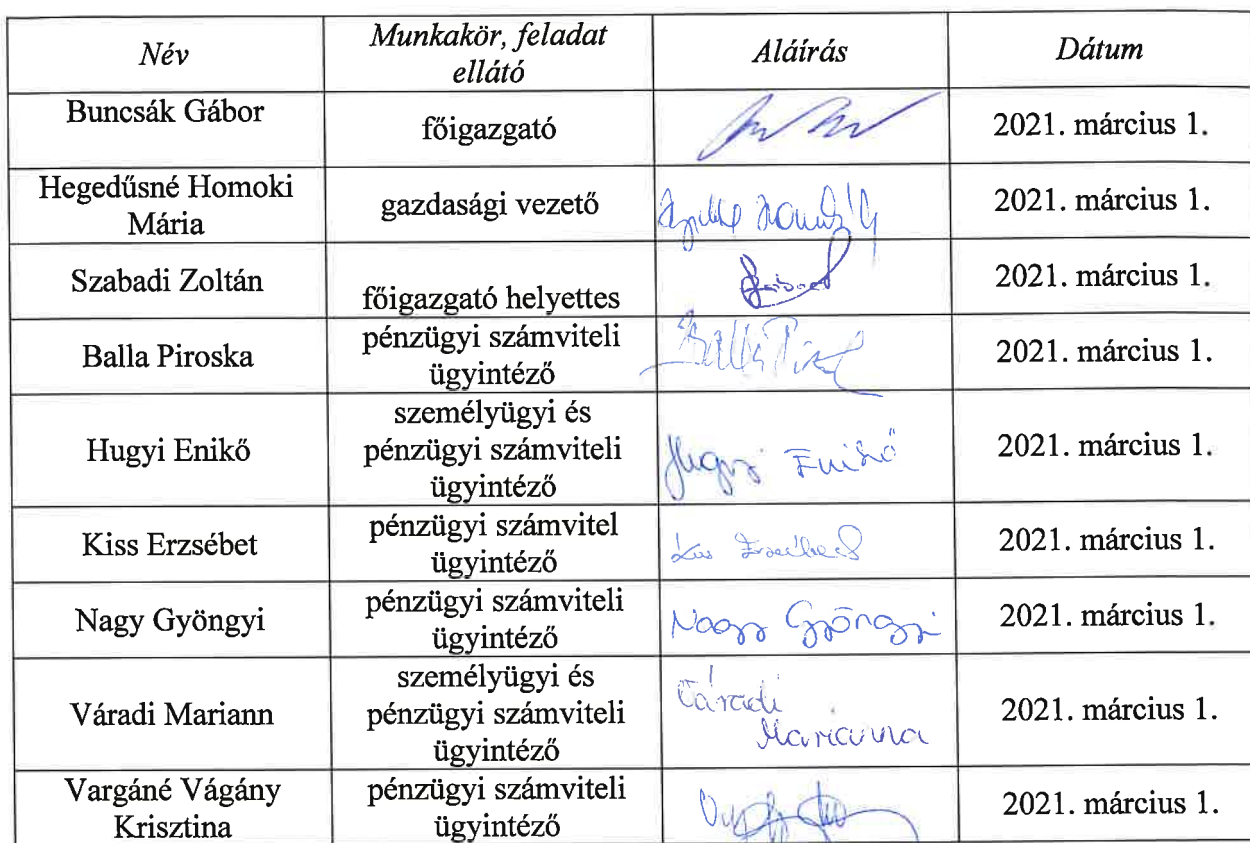 Név Munkakör, feladat ellátó Aláírás Dátum
Buncsák Gábor főigazgató 2021. március 1.
Hegedűsné Homoki Mária gazdasági vezető 2021. március 1.
Szabadi Zoltán főigazgató helyettes 2021. március 1.
Balla Piroska pénzügyi számviteli ügyintéző 2021. március 1.
Hugyi Enikő személyügyi és pénzügyi számviteli ügyintéző Hugyi Enikő 2021. március 1.
Kiss Erzsébet pénzügyi számvitel ügyintéző Kiss Erzsébet 2021. március 1.
Nagy Gyöngyi pénzügyi számviteli ügyintéző Nagy Gyöngyi 2021. március 1.
Váradi Mariann személyügyi és pénzügyi számviteli ügyintéző Váradi Marianna 2021. március 1.
Vargáné Vágány Krisztina pénzügyi számviteli ügyintéző 2021. március 1.